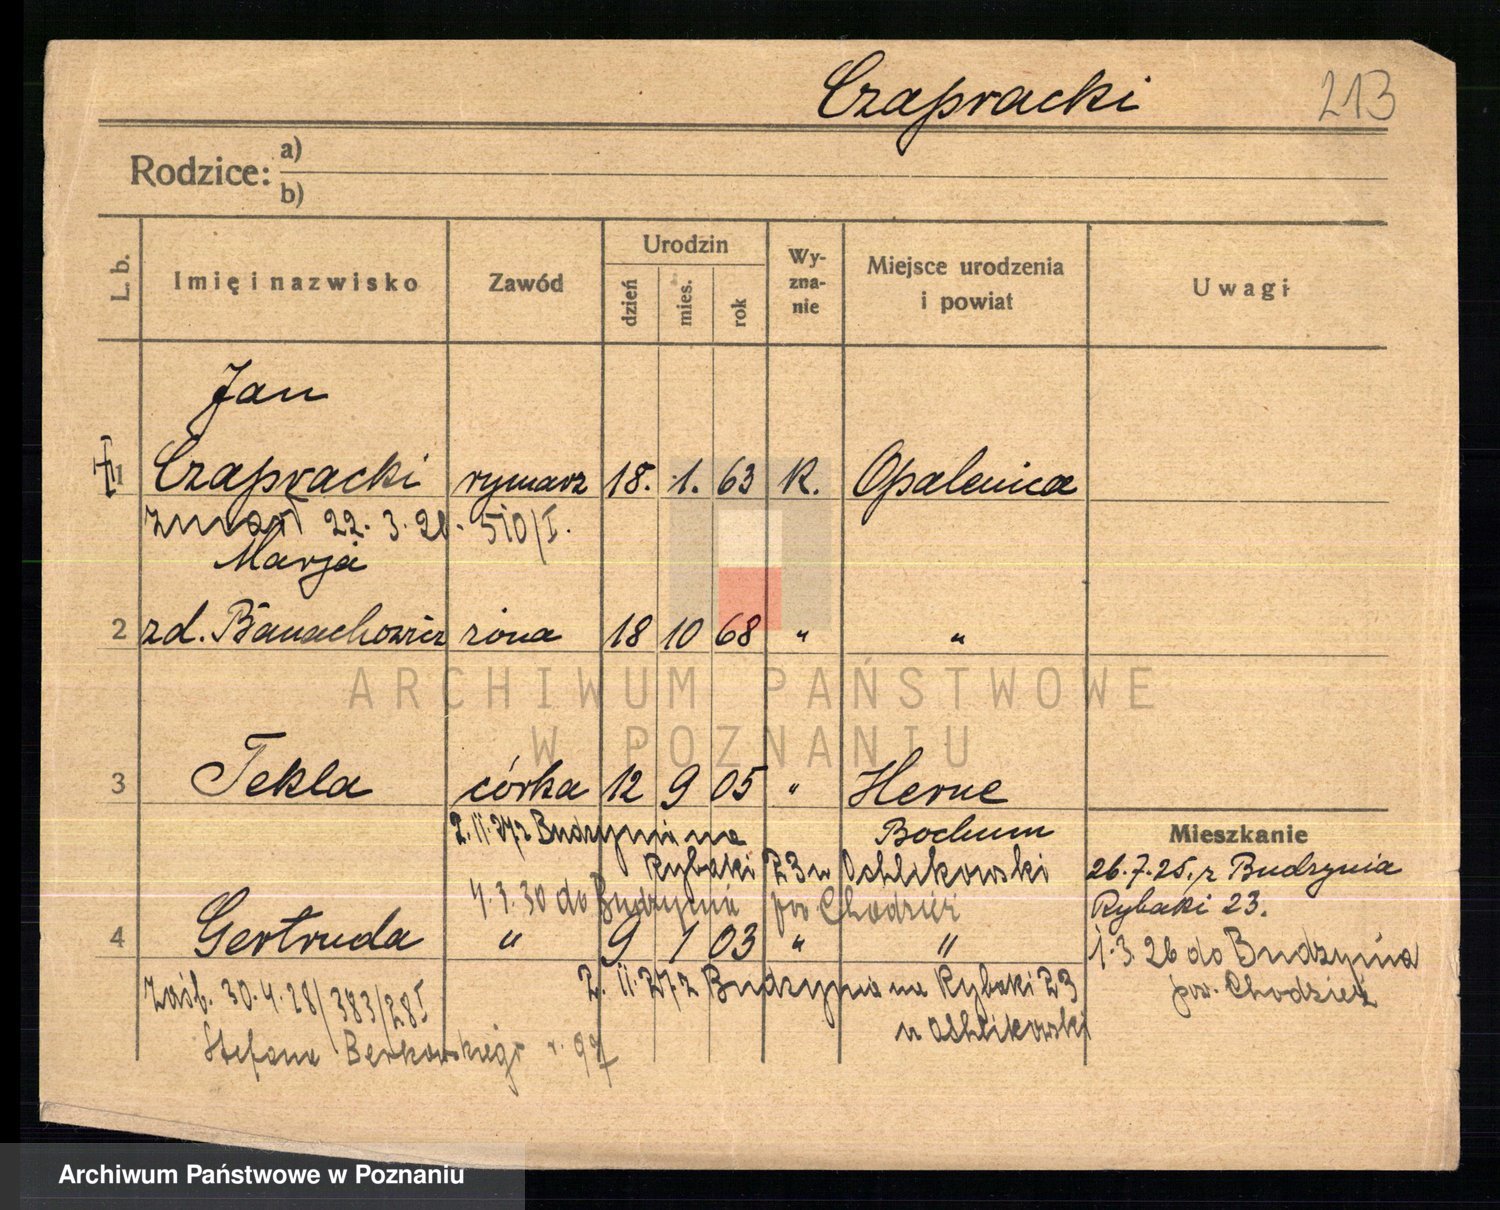 Czapracki 213
Rodzice: a)
b)
L. b. Imię i nazwisko Zawód Urodzin dzień mies. rok Wy-zna-nie Miejsce urodzenia i powiat Uwagi
Jan
1 Czapracki rymarz 18. 1. 63 K. Opalenica
zmarł 22. 3. 510/I.
Marja
2 zd. Banachowicz żona 18 10 68 " "
ARCHIWUM PAŃSTWOWE
W POZNANIU
3 Tekla córka 12 9 05 " Herne
Bochum
2.11.27 z Budzynia na
Rybaki 23 u
4.3.30 do Budzynia pow Chodzież
4 Gertruda " 9 1 03 " "
2.11.27 z Budzynia na Rybaki 23
u
zaśb. 30.4.28/383/28 I
Stefana Berkowskiego r. 97
Mieszkanie
26.7.25, z Budzynia
Rybaki 23.
1.3.26 do Budzynia
pow. Chodzież
Archiwum Państwowe w Poznaniu